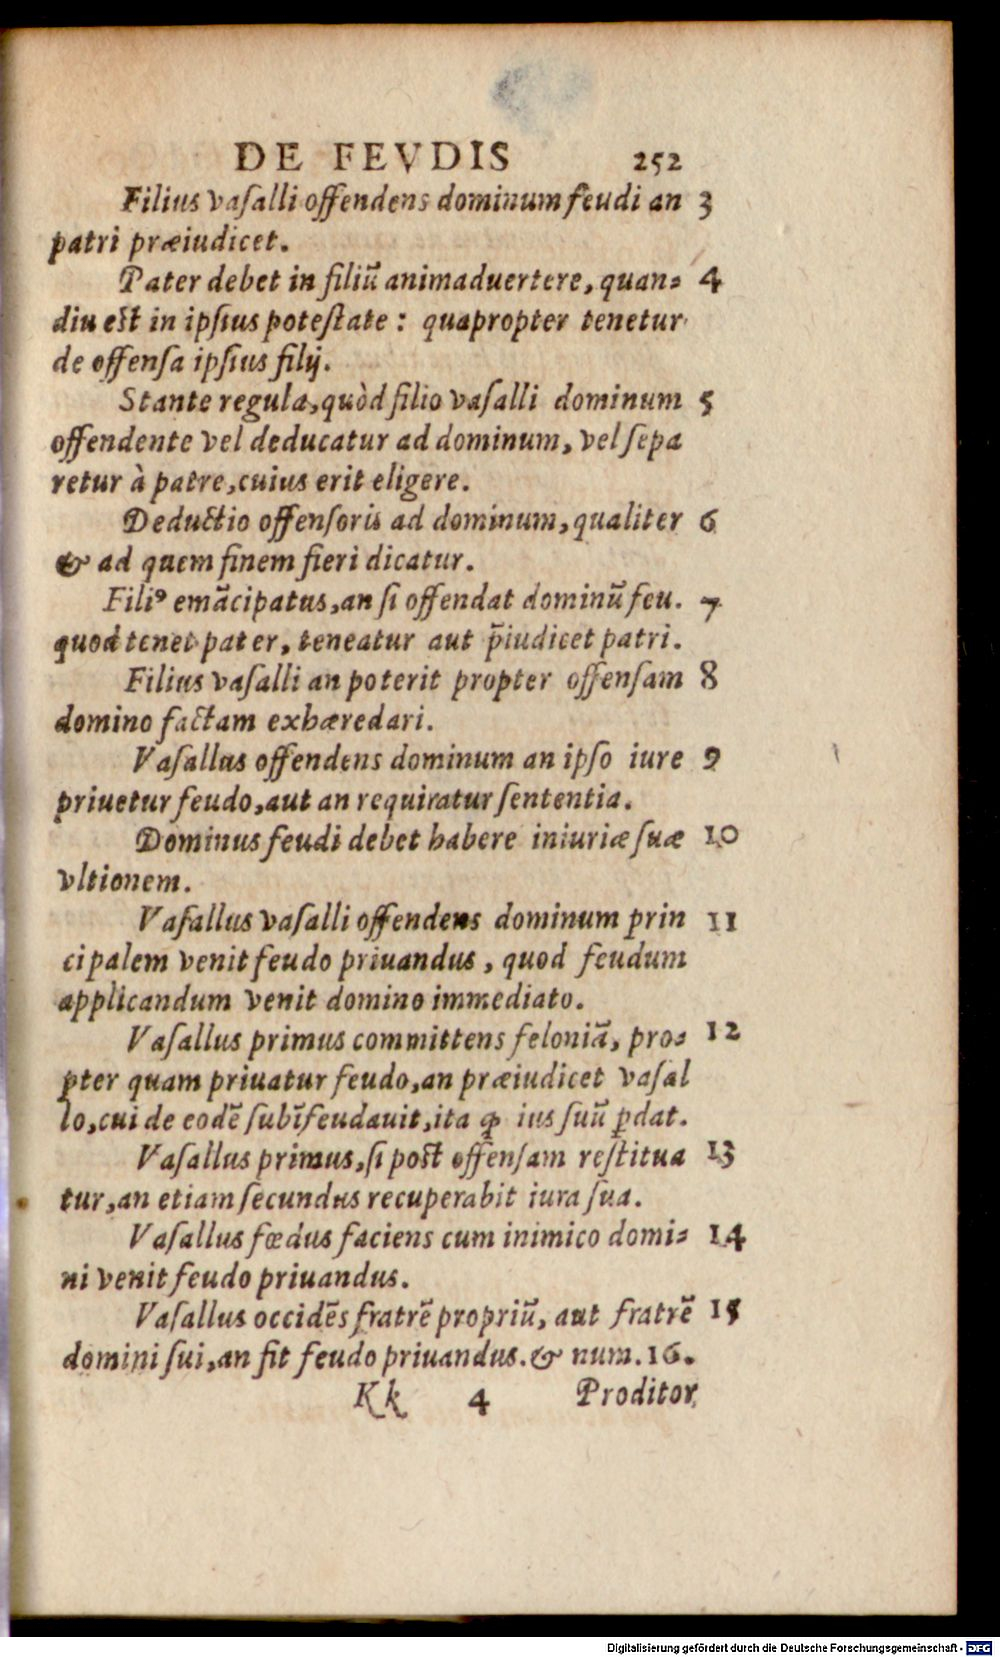 DE FEVDIS 252
Filius vaſalli offendens dominum feudi an 3
patri præiudicet.
Pater debet in filiũ animaduertere, quan- 4
diu eſt in ipſius poteſtate : quapropter tenetur
de offenſa ipſius filij.
Stante regula, quòd filio vaſalli dominum 5
offendente vel deducatur ad dominum, vel ſepa
retur à patre, cuius erit eligere.
Deductio offenſoris ad dominum, qualiter 6
& ad quem finem fieri dicatur.
Filiꝰ emãcipatus, an ſi offendat dominũ feu. 7
quod tenet pater, teneatur aut p̃iudicet patri.
Filius vaſalli an poterit propter offenſam 8
domino factam exhæredari.
Vaſallus offendens dominum an ipſo iure 9
priuetur feudo, aut an requiratur ſententia.
Dominus feudi debet habere iniuriæ ſuæ 10
vltionem.
Vaſallus vaſalli offendens dominum prin 11
cipalem venit feudo priuandus, quod feudum
applicandum venit domino immediato.
Vaſallus primus committens feloniã, pro- 12
pter quam priuatur feudo, an præiudicet vaſal
lo, cui de eodẽ ſubĩfeudauit, ita ꝙ ius ſuũ ꝑdat.
Vaſallus primus, ſi poſt offenſam reſtitua 13
tur, an etiam ſecundus recuperabit iura ſua.
Vaſallus fœdus faciens cum inimico domi- 14
ni venit feudo priuandus.
Vaſallus occidẽs fratrẽ propriũ, aut fratrẽ 15
domini ſui, an ſit feudo priuandus. & num. 16.
Kk 4 Proditor
Digitalisierung gefördert durch die Deutsche Forschungsgemeinschaft - DFG